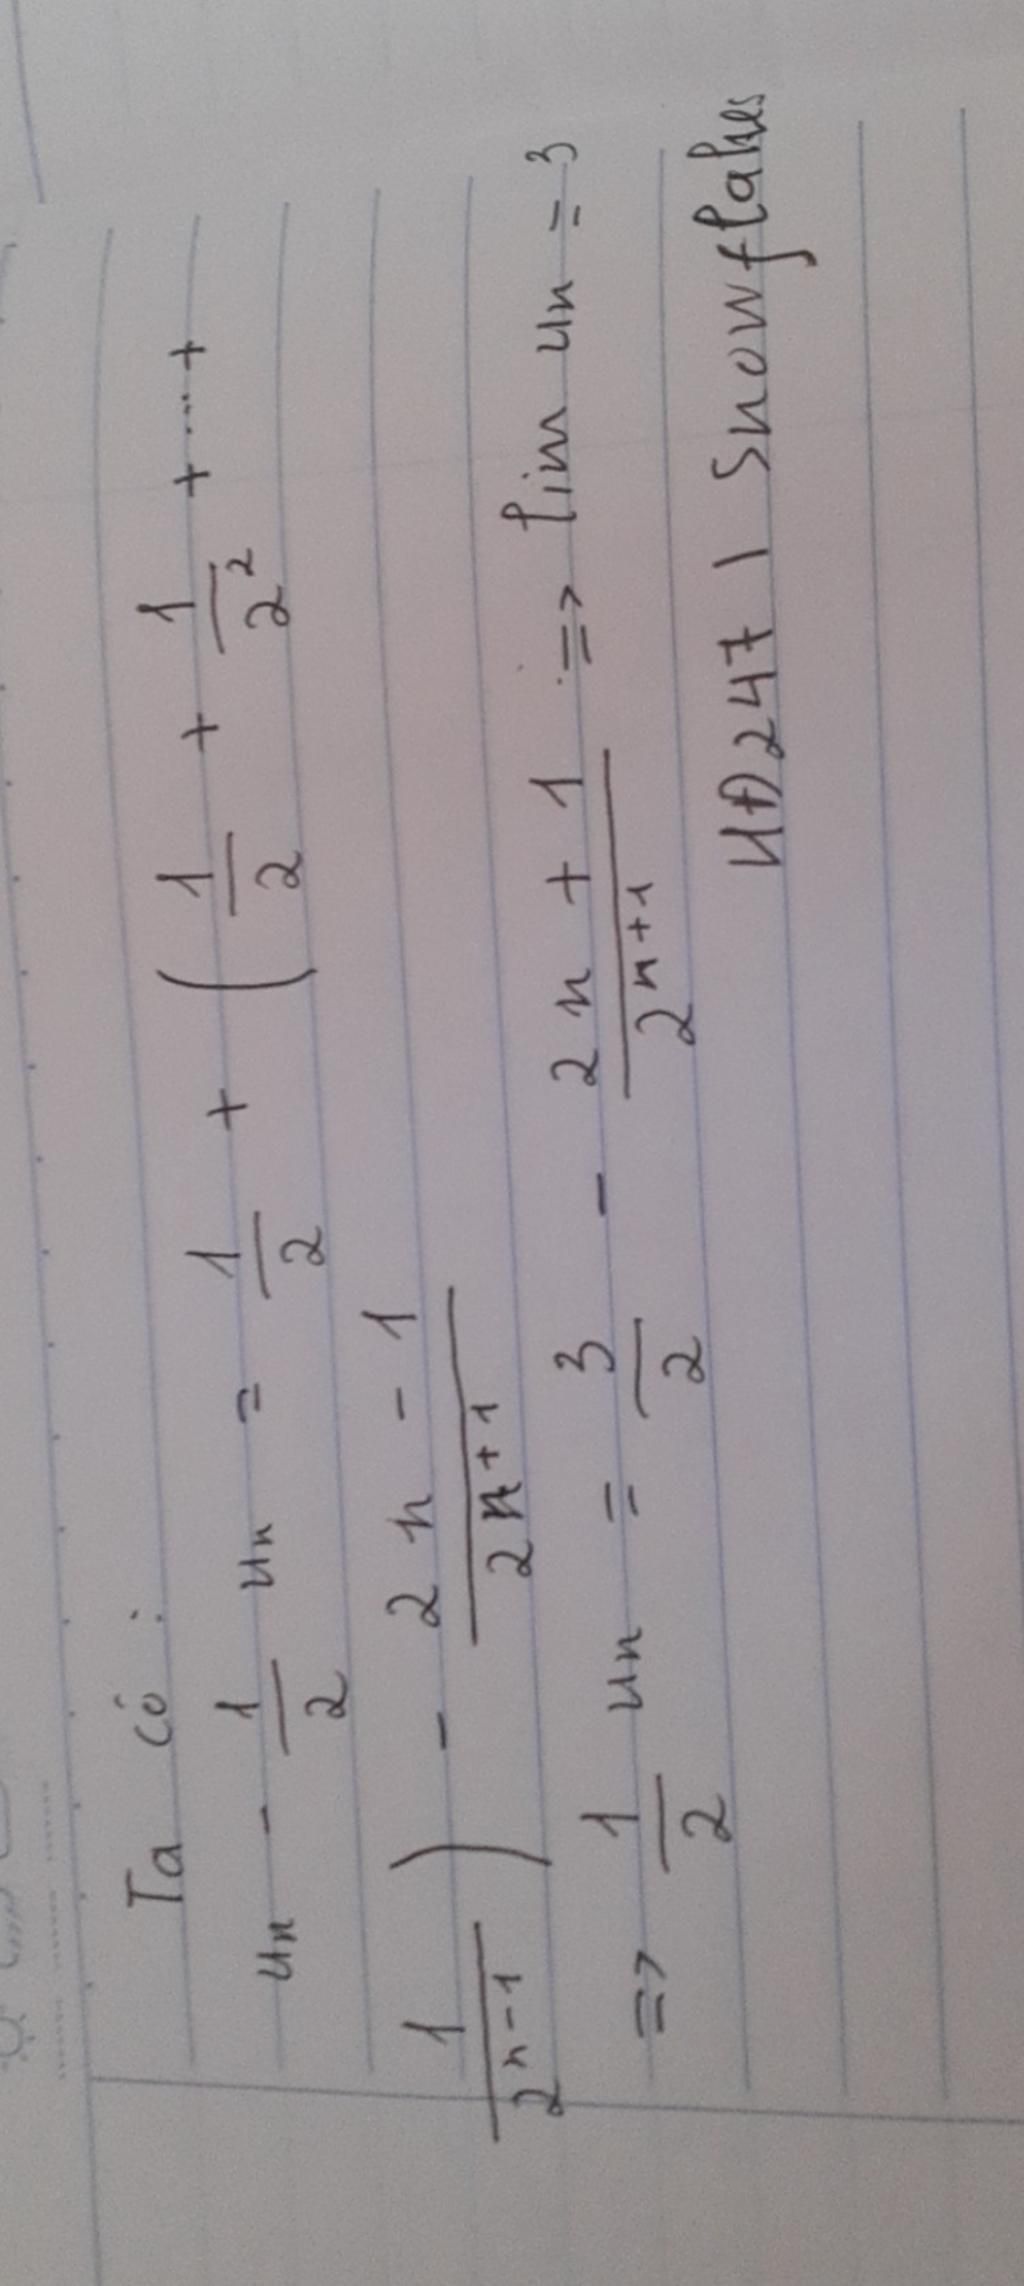 Ta có:
un - 1/2 un = 1/2 + (1/2 + 1/2² + ... +
1/2ⁿ⁻¹) - (2n - 1)/2ⁿ⁺¹
=> 1/2 un = 3/2 - (2n + 1)/2ⁿ⁺¹ => lim un = 3
HĐ247 | Snowflakes